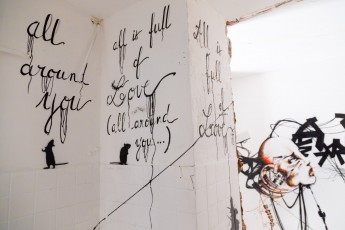 all
around
you
all is full
of
Love
(all around
you...)
All
is
full
of
Love